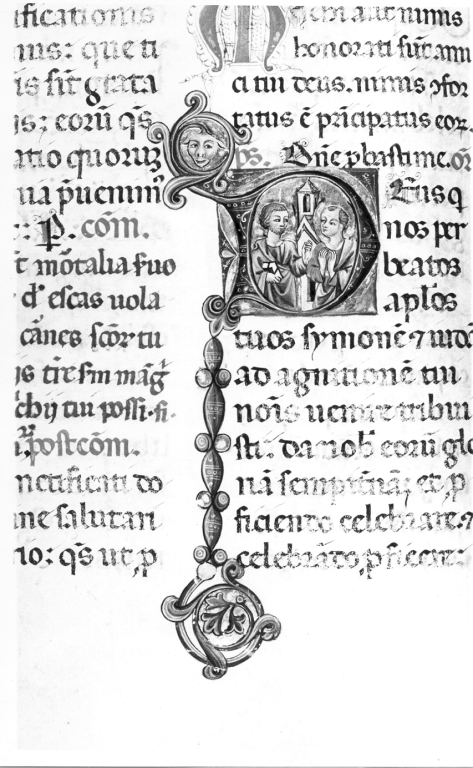 ificationis
nus: que ti
is sit grata
is: eorū qs̄
atio quoruȝ
ua ꝑuenim
: P. cōm.
t mōtalia fuo
d' escas uola
cānes scōr tu
is tīre sm̄ māg
chij tui possi·fi·
postcōm.
nctificati do
me salutari
rio: qs̄ ut ꝑ
honorati sūt ami
ci tui deus. nimis ↄfor
tatus ē principatus eoꝝ.
ps. Dn̄e ꝓbasti me. oꝛ̄
Deus q
nos per
beatos
aplōs
tuos symonē ⁊ iudā
ad agnitionē tui
nois uenire tribui
sti. da nob̄ eorū glo
ficiendo celebrare. ⁊
celebrādo, ꝓficere: